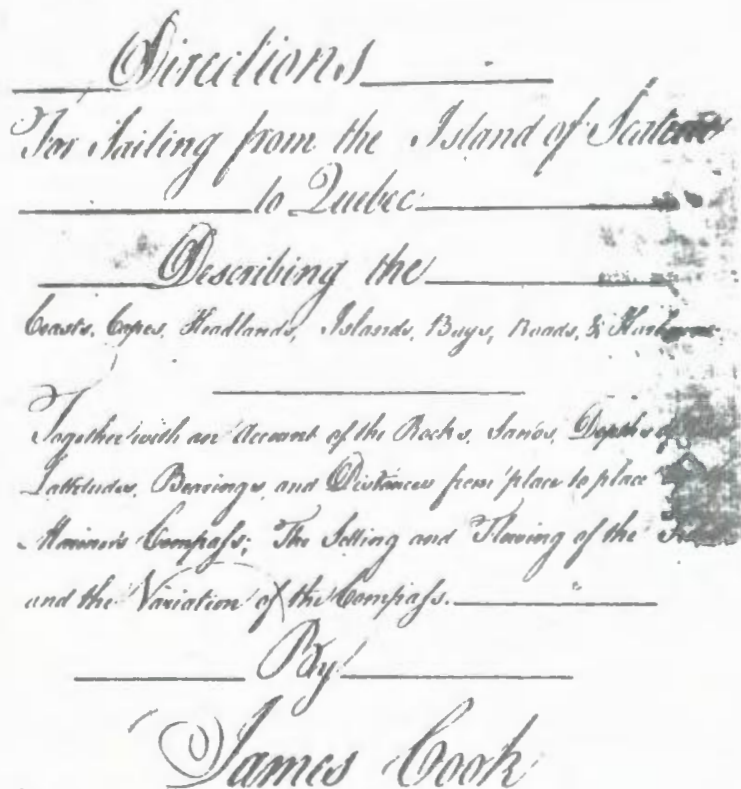 Directions
For Sailing from the Island of
to Quebec
Describing the
Coasts, Capes, Headlands, Islands, Bays, Roads, &
Together with an Account of the Rocks, Sands, Depths of
Lattitudes, Bearings, and Distances from place to place
Mariner's Compass; The Setting and Flowing of the
and the Variation of the Compass.
By
James Cook